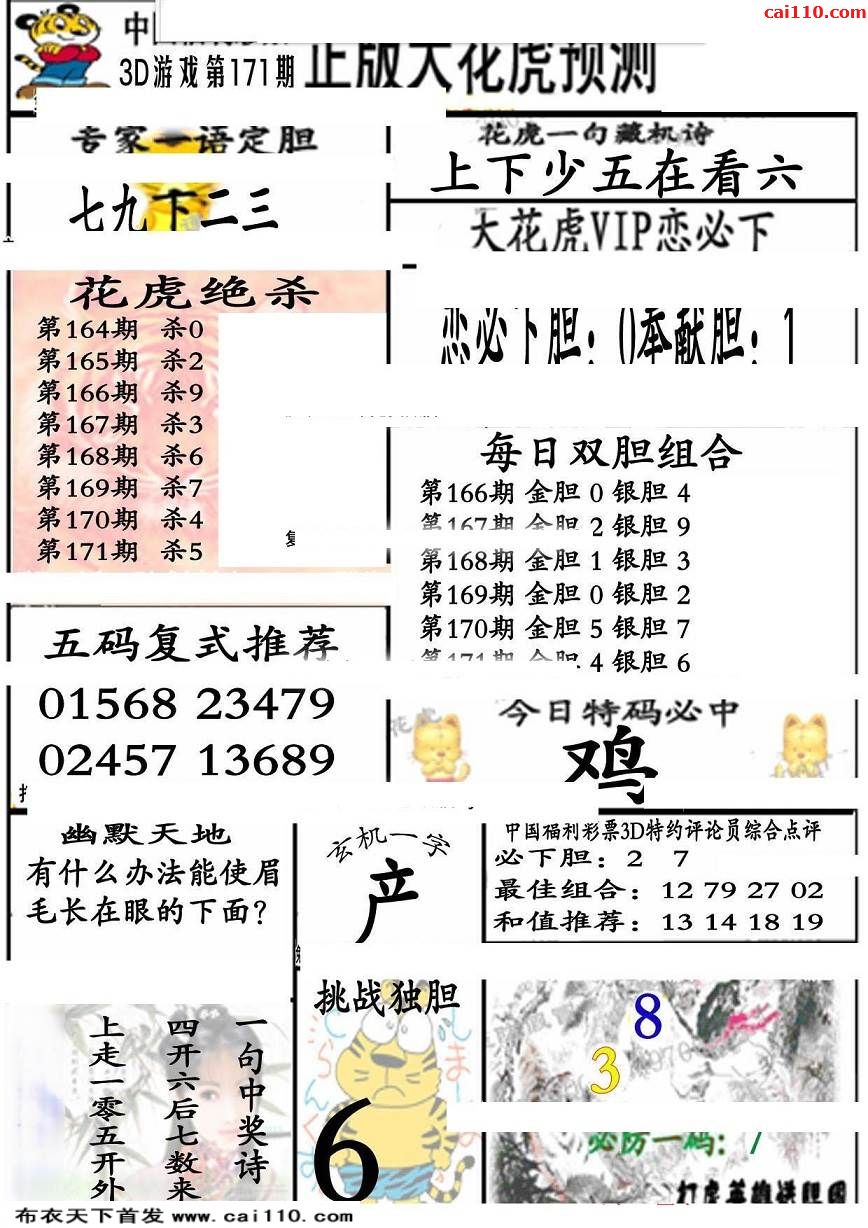 cai110.com
3D游戏第171期
正版大花虎预测
专家一语定胆
七九下二三
花虎一句藏机诗
上下少五在看六
大花虎VIP恋必下
恋必下胆：0奉献胆：1
花虎绝杀
第164期 杀0
第165期 杀2
第166期 杀9
第167期 杀3
第168期 杀6
第169期 杀7
第170期 杀4
第171期 杀5
每日双胆组合
第166期 金胆 0 银胆 4
第167期 金胆 2 银胆 9
第168期 金胆 1 银胆 3
第169期 金胆 0 银胆 2
第170期 金胆 5 银胆 7
第171期 金胆 4 银胆 6
五码复式推荐
01568 23479
02457 13689
花虎
今日特码必中
鸡
幽默天地
有什么办法能使眉
毛长在眼的下面？
玄机一字
产
中国福利彩票3D特约评论员综合点评
必下胆：2 7
最佳组合：12 79 27 02
和值推荐：13 14 18 19
一句中奖诗
四开六后七数来
上走一零五开外
挑战独胆
6
8
3
必防一码：7
打虎英雄送胆图
布衣天下首发 www.cai110.com